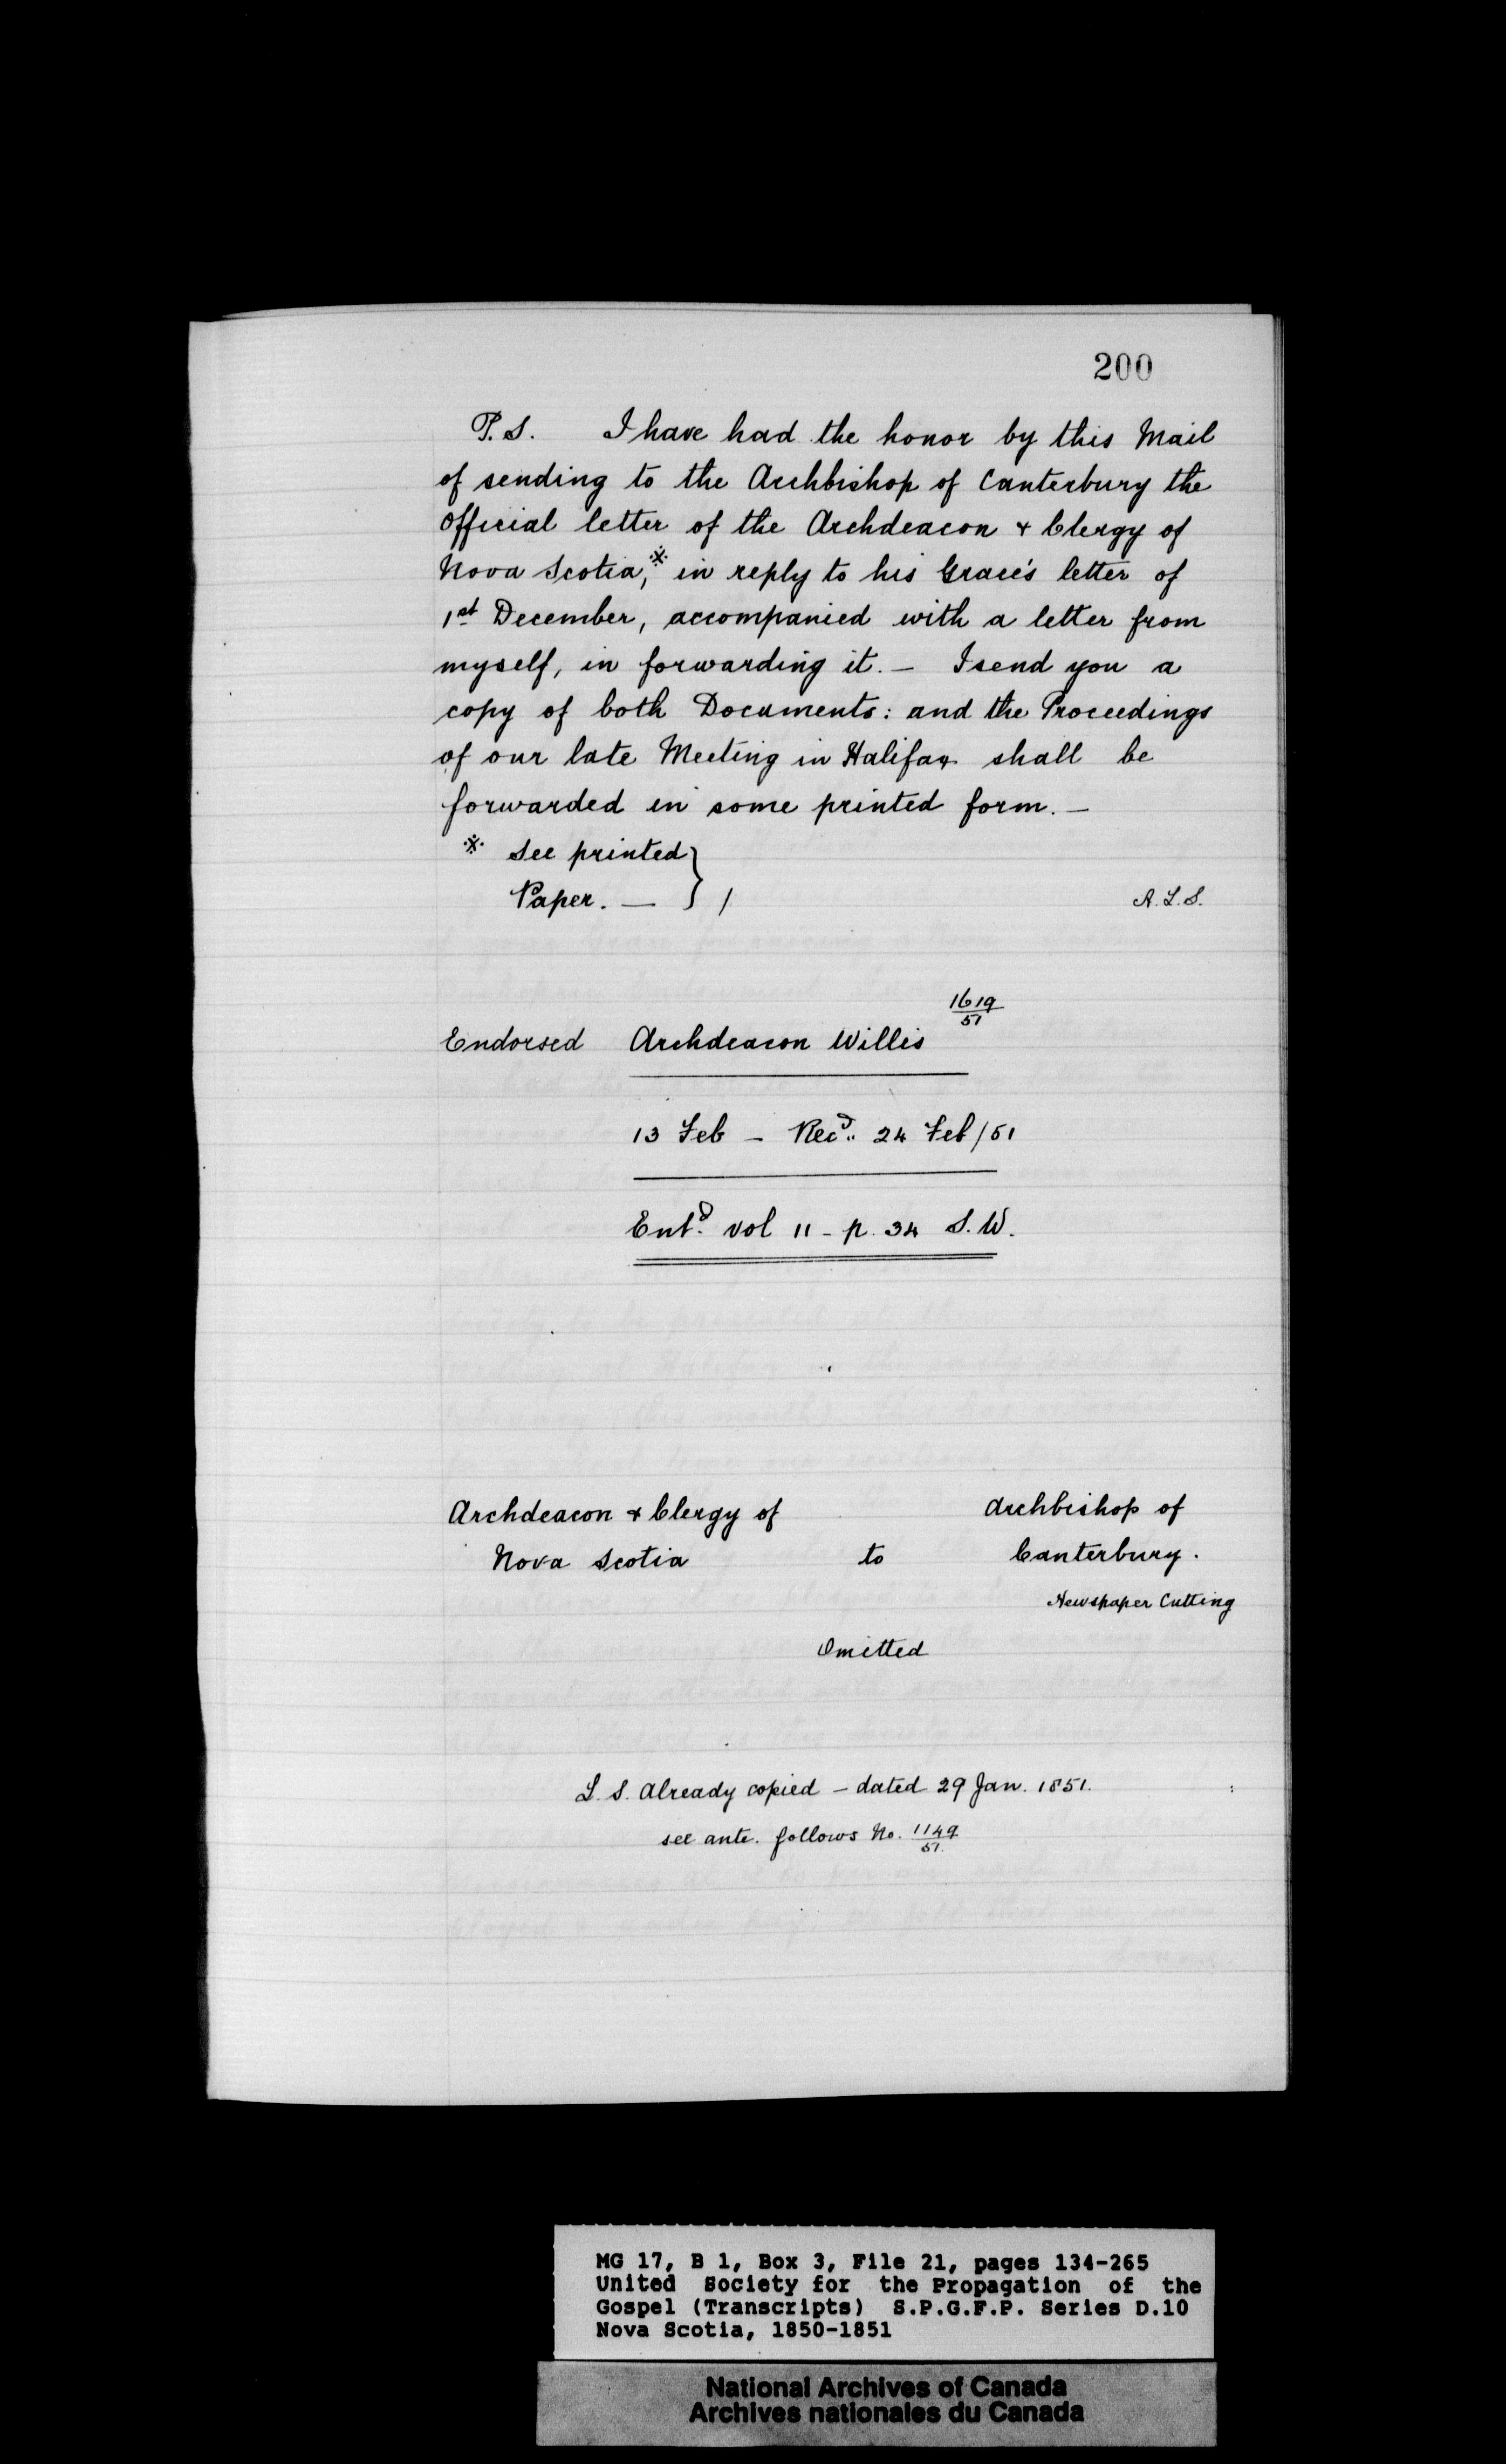 200
P.S. I have had the honor by this Mail
of sending to the Archbishop of Canterbury the
Official letter of the Archdeacon & Clergy of
Nova Scotia,※ in reply to his Grace's letter of
1st December, accompanied with a letter from
myself, in forwarding it. — I send you a
copy of both Documents: and the Proceedings
of our late Meeting in Halifax shall be
forwarded in some printed form. —
※ See printed }
Paper. — } /
A.L.S.
1619/51
Endorsed Archdeacon Willis
13 Feb — Recd.. 24 Feb/51
Entd. vol 11 - p. 34 S.W.
Archdeacon & Clergy of Archbishop of
Nova Scotia to Canterbury.
Newspaper Cutting
Omitted
L.S. Already copied — dated 29 Jan. 1851.
see ante. follows No. 1149/51.
MG 17, B 1, Box 3, File 21, pages 134-265
United Society for the Propagation of the
Gospel (Transcripts) S.P.G.F.P. Series D.10
Nova Scotia, 1850-1851
National Archives of Canada
Archives nationales du Canada